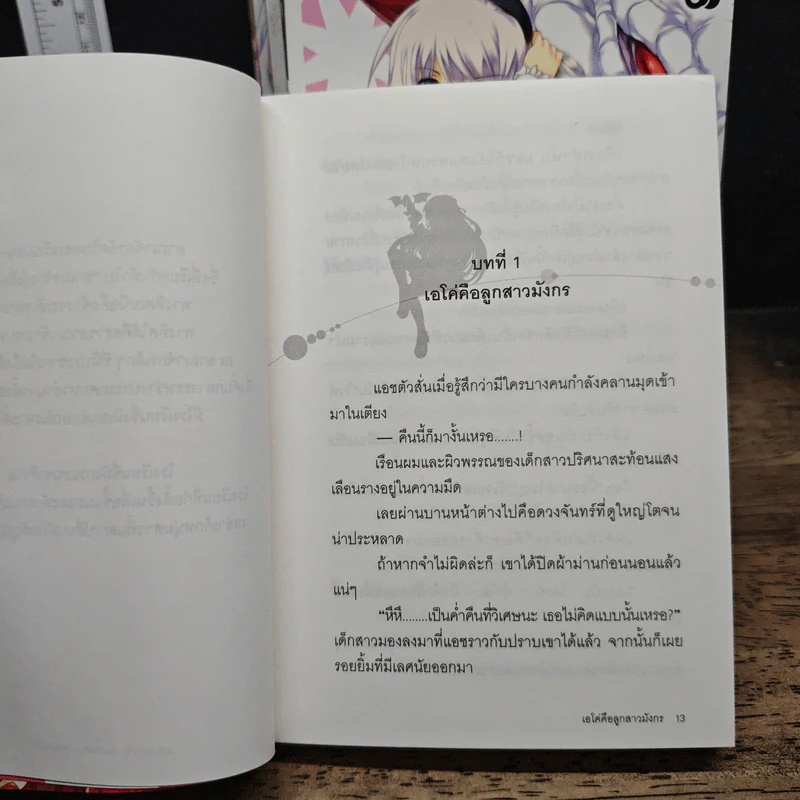 บทที่ 1
เอโค่คือลูกสาวมังกร
แอชตัวสั่นเมื่อรู้สึกว่ามีใครบางคนกำลังคลานมุดเข้า
มาในเตียง
— คืนนี้ก็มางั้นเหรอ.......!
เรือนผมและผิวพรรณของเด็กสาวปริศนาสะท้อนแสง
เลือนรางอยู่ในความมืด
เลยผ่านบานหน้าต่างไปคือดวงจันทร์ที่ดูใหญ่โตจน
น่าประหลาด
ถ้าหากจำไม่ผิดล่ะก็ เขาได้ปิดผ้าม่านก่อนนอนแล้ว
แน่ๆ
“หึหึ........เป็นค่ำคืนที่วิเศษนะ เธอไม่คิดแบบนั้นเหรอ?”
เด็กสาวมองลงมาที่แอชราวกับปราบเขาได้แล้ว จากนั้นก็เผย
รอยยิ้มที่มีเลศนัยออกมา
เอโค่คือลูกสาวมังกร 13